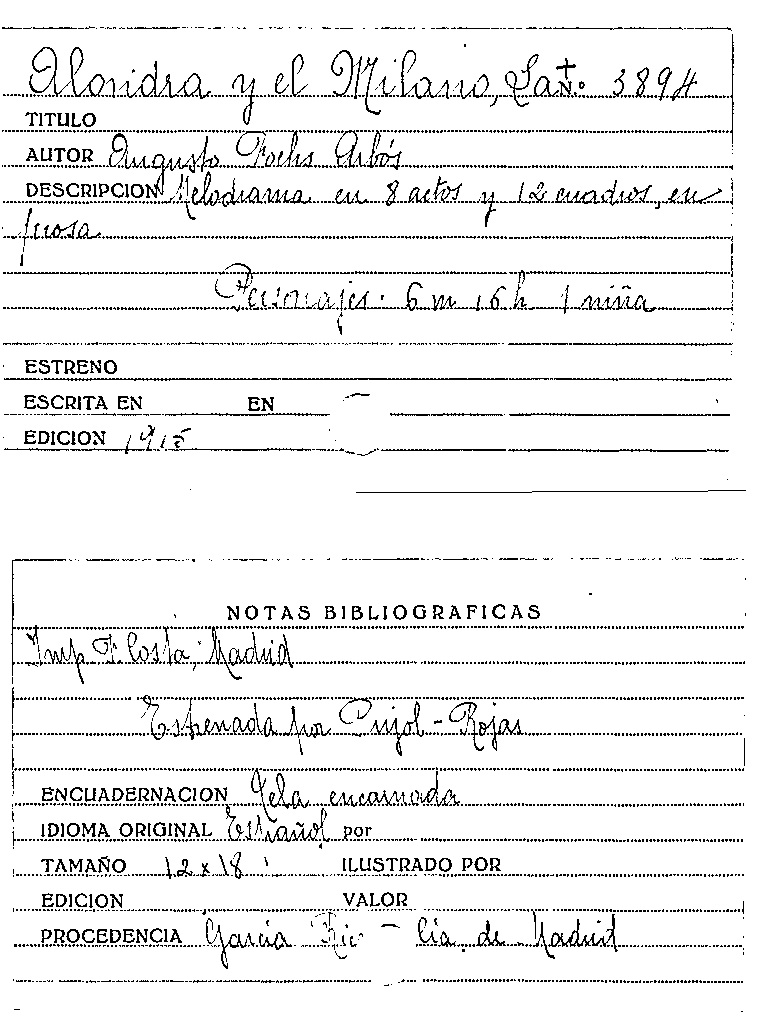 Alondra y el Milano, La. 3894
TITULO
AUTOR Augusto Fochs Arbós
DESCRIPCION Melodrama en 8 actos y 12 cuadros, en
prosa
Personajes. 6 m 16 h 1 niña
ESTRENO
ESCRITA EN EN
EDICION 1915
NOTAS BIBLIOGRAFICAS
Imp. F. Costa, Madrid
Estrenada por Pujol - Rojas
ENCUADERNACION Tela encarnada
IDIOMA ORIGINAL Español por
TAMAÑO 12 x 18 ILUSTRADO POR
EDICION VALOR
PROCEDENCIA García Rico - Cía. de Madrid